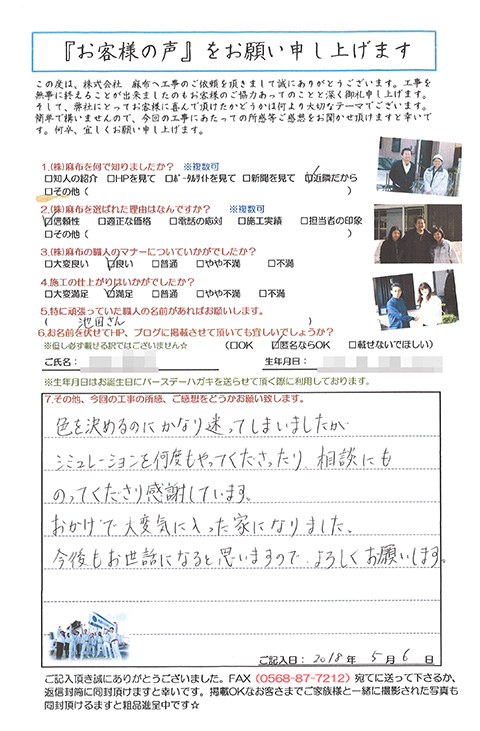 『お客様の声』をお願い申し上げます
この度は、株式会社 麻布へ工事のご依頼を頂きまして誠にありがとうございます。工事を
無事に終えることが出来ましたのもお客様のご協力あってのことと深く御礼申し上げます。
そして、弊社にとってお客様に喜んで頂けたかどうかは何より大切なテーマでございます。
簡単で構いませんので、今回の工事にあたっての所感等ご感想をお聞かせ頂けますと幸いで
す。何卒、宜しくお願い申し上げます。
1.(株)麻布を何で知りましたか？ ※複数可
□知人の紹介 □HPを見て □ﾎﾟｰﾀﾙｻｲﾄを見て □新聞を見て ☑近隣だから
□その他（ ）
2.(株)麻布を選ばれた理由はなんですか？ ※複数可
☑信頼性 □適正な価格 □電話の応対 □施工実績 □担当者の印象
□その他（ ）
3.(株)麻布の職人のマナーについていかがでしたか？
□大変良い ☑良い □普通 □やや不満 □不満
4.施工の仕上がりはいかがでしたか？
□大変満足 ☑満足 □普通 □やや不満 □不満
5.特に頑張っていた職人の名前があればお願いします。
（ 池田さん ）
6.お名前を伏せてHP、ブログに掲載させて頂いても宜しいでしょうか？
※但し必ず載せる訳ではございません☆ （□OK ☑匿名ならOK □載せないでほしい）
ご氏名： 生年月日：
※生年月日はお誕生日にバースデーハガキを送らせて頂く際に利用しております。
7.その他、今回の工事の所感、ご感想をどうかお願い致します。
色を決めるのにかなり迷ってしまいましたが
シミュレーションを何度もやってくださったり 相談にも
のってくださり感謝しています。
おかげで大変気に入った家になりました。
今後もお世話になると思いますので よろしくお願いします。
ご記入日：2018年 5月 6日
ご記入頂き誠にありがとうございました。FAX（0568-87-7212）宛てに送って下さるか、
返信封筒に同封頂けますと幸いです。掲載OKなお客さまでご家族様と一緒に撮影された写真も
同封頂けるますと粗品進呈中です☆